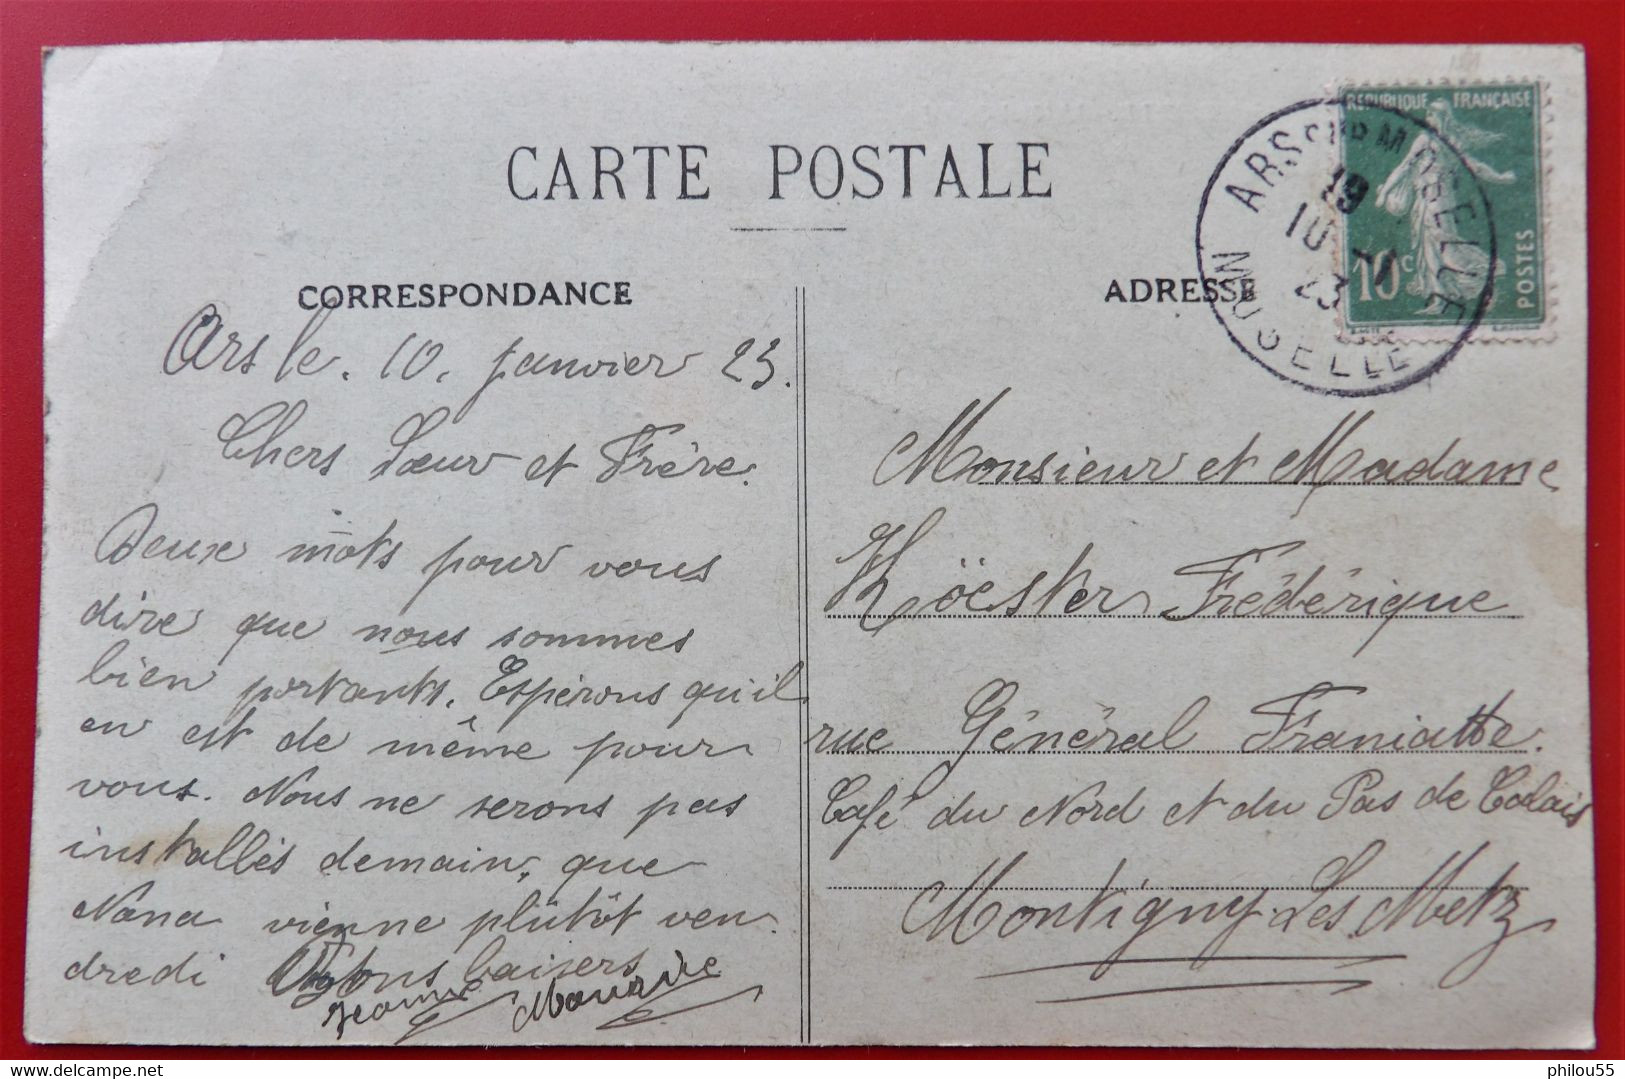 CARTE POSTALE
CORRESPONDANCE
Ars le. 10. janvier 23.
Chers Sœur et Frère.
Deux mots pour vous
dire que nous sommes
bien portants. Espérons qu'il
en est de même pour
vous. Nous ne serons pas
installés demain, que
Nana vienne plûtôt ven
dredi baisers
Jeanne Maurice
ADRESSE
Monsieur et Madame
Köester Frédérique
rue Général Franiatte.
Café du Nord et du Pas de Calais
Montigny-Les-Metz
REPUBLIQUE FRANÇAISE
10c
POSTES
ARS SUR MOSELLE
19
10 -1
23
MOSELLE
Delcampe.net
philou55